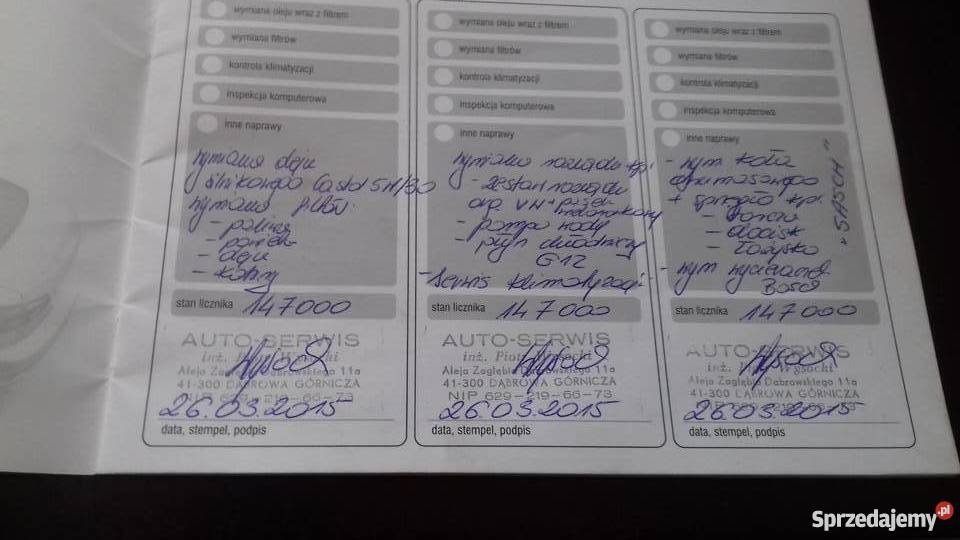 wymiana oleju wraz z filtrem
wymiana filtrów
kontrola klimatyzacji
inspekcja komputerowa
inne naprawy
wymiana oleju
silnikowego Castrol 5W/30
wymiana filtrów:
- paliwa
- powietrza
- oleju
- kabiny
stan licznika 147000
AUTO-SERWIS
inż. Piotr Wysocki
Aleja Zagłębia Dąbrowskiego 11a
41-300 DĄBROWA GÓRNICZA
NIP 629-219-66-73
26.03.2015
data, stempel, podpis
wymiana oleju wraz z filtrem
wymiana filtrów
kontrola klimatyzacji
inspekcja komputerowa
inne naprawy
wymiana rozrządu kpl.
- zestaw rozrządu
+ pasek
- pompa wody
- płyn chłodniczy
G12
- Serwis klimatyzacji
stan licznika 147000
AUTO-SERWIS
inż. Piotr Wysocki
Aleja Zagłębia Dąbrowskiego 11a
41-300 DĄBROWA GÓRNICZA
NIP 629-219-66-73
26.03.2015
data, stempel, podpis
wymiana oleju wraz z filtrem
wymiana filtrów
kontrola klimatyzacji
inspekcja komputerowa
inne naprawy
- wym koła
+ sprzęgło kpl.
- tarcza
- docisk
- łożysko
"SASCH"
- wym wycieraczek
Bosch
stan licznika 147000
AUTO-SERWIS
inż. Piotr Wysocki
Aleja Zagłębia Dąbrowskiego 11a
41-300 DĄBROWA GÓRNICZA
26.03.2015
data, stempel, podpis
Sprzedajemy.pl